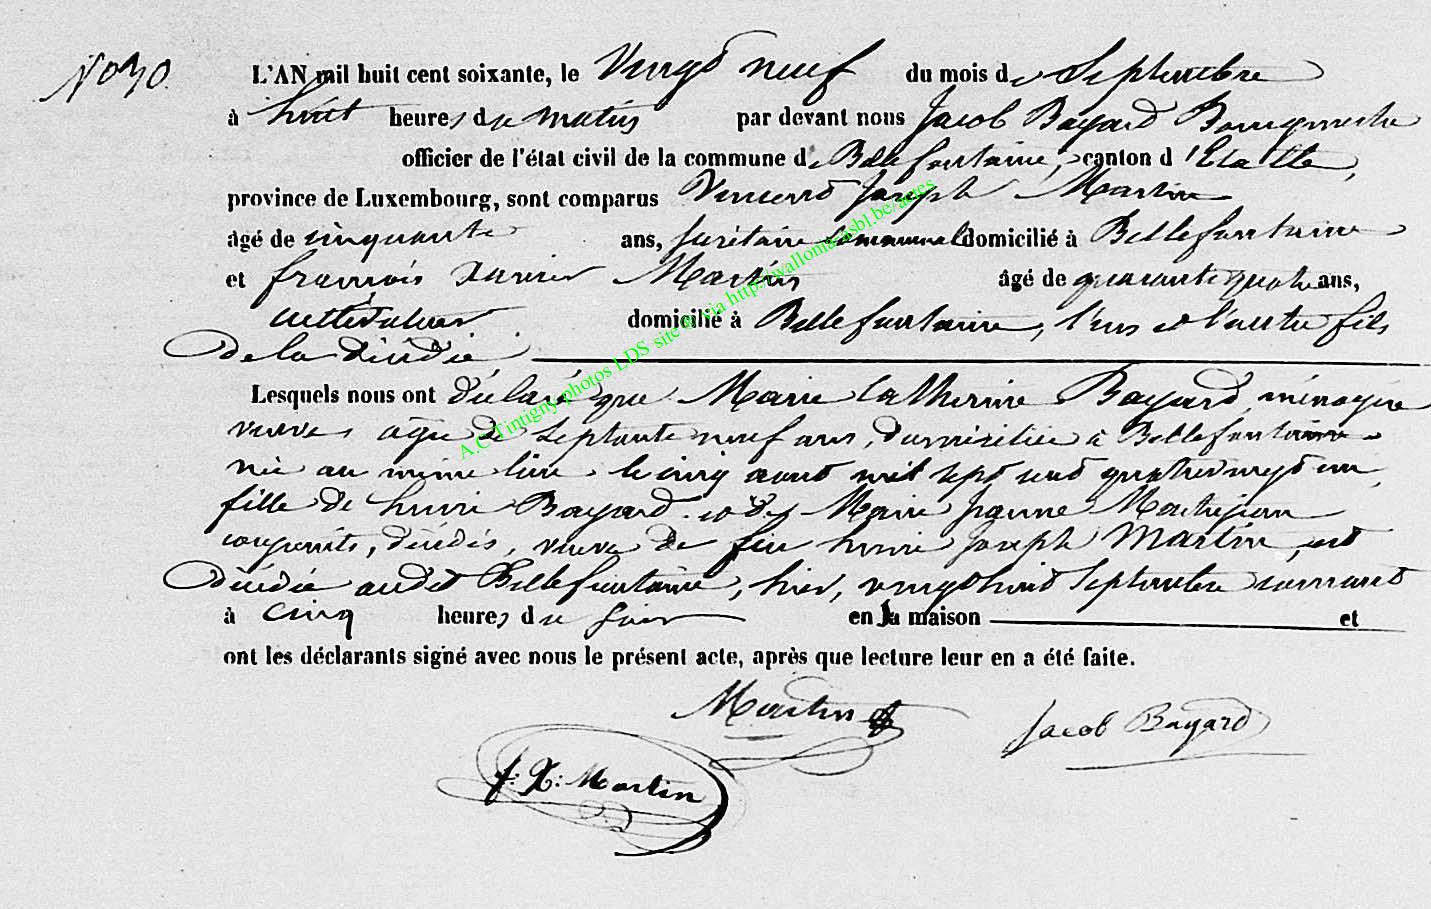 No 30.
L'AN mil huit cent soixante, le Vingt neuf du mois de Septembre
à huit heures du matin par devant nous Jacob Bayard Bourgmestre
officier de l'état civil de la commune de Bellefontaine, canton d'Etalle,
province de Luxembourg, sont comparus Vincent Joseph Martin
âgé de cinquante ans, secrétaire communal domicilié à Bellefontaine
et françois Xavier Martin âgé de quarante quatre ans,
cultivateur domicilié à Bellefontaine, l'un et l'autre fils
de la décédée
Lesquels nous ont déclaré que Marie Catherine Bayard, ménagère
veuve, agée de septante neuf ans, domiciliée à Bellefontaine
née au même lieu le cinq aout mil sept cent quatrevingt un,
fille de henri Bayard et de Marie Jeanne Monhijean
conjoints, décédés, veuve de feu henri Joseph Martin, est
décédée audit Bellefontaine, hier, vingt huit Septembre courant
à cinq heures du soir en sa maison et
ont les déclarants signé avec nous le présent acte, après que lecture leur en a été faite.
Martin
Jacob Bayard
f: X: Martin
A.C. Tintigny photos LDS site et via http://wallomaniasbl.be/actes